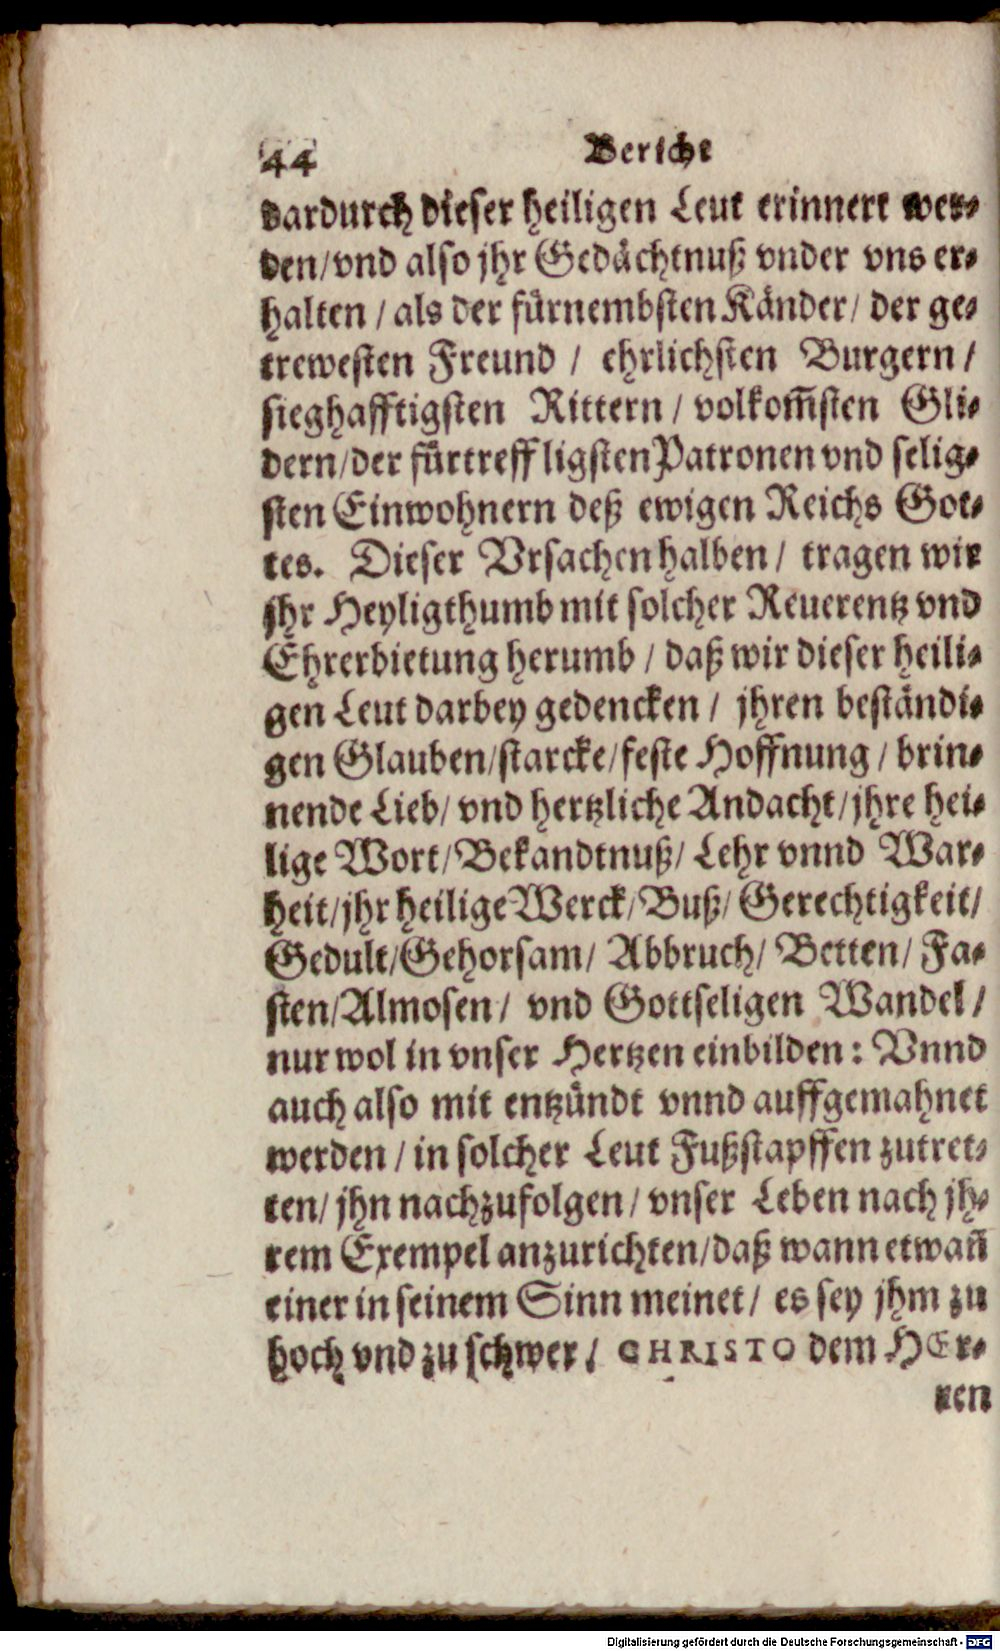 44 Bericht
dardurch dieser heiligen Leut erinnert wer-
den/vnd also jhr Gedächtnuß vnder vns er-
halten / als der fürnembsten Känder/ der ge-
trewesten Freund / ehrlichsten Burgern /
sieghafftigsten Rittern / volkom̃sten Gli-
dern/der fürtreffligsten Patronen vnd selig-
sten Einwohnern deß ewigen Reichs Got-
tes. Dieser Vrsachen halben / tragen wir
jhr Heyligthumb mit solcher Reuerentz vnd
Ehrerbietung herumb / daß wir dieser heili-
gen Leut darbey gedencken / jhren beständi-
gen Glauben/starcke/feste Hoffnung / brin-
nende Lieb/ vnd hertzliche Andacht/jhre hei-
lige Wort/Bekandtnuß/ Lehr vnnd War-
heit/jhr heilige Werck/Buß/ Gerechtigkeit/
Gedult/Gehorsam/ Abbruch/ Betten/ Fa-
sten/Almosen/ vnd Gottseligen Wandel /
nur wol in vnser Hertzen einbilden: Vnnd
auch also mit entzündt vnnd auffgemahnet
werden / in solcher Leut Fußstapffen zutret-
ten/ jhn nachzufolgen/ vnser Leben nach jh-
rem Exempel anzurichten/daß wann etwan̄
einer in seinem Sinn meinet/ es sey jhm zu
hoch vnd zu schwer / CHRISTO dem HEr-
ren
Digitalisierung gefördert durch die Deutsche Forschungsgemeinschaft - DFG